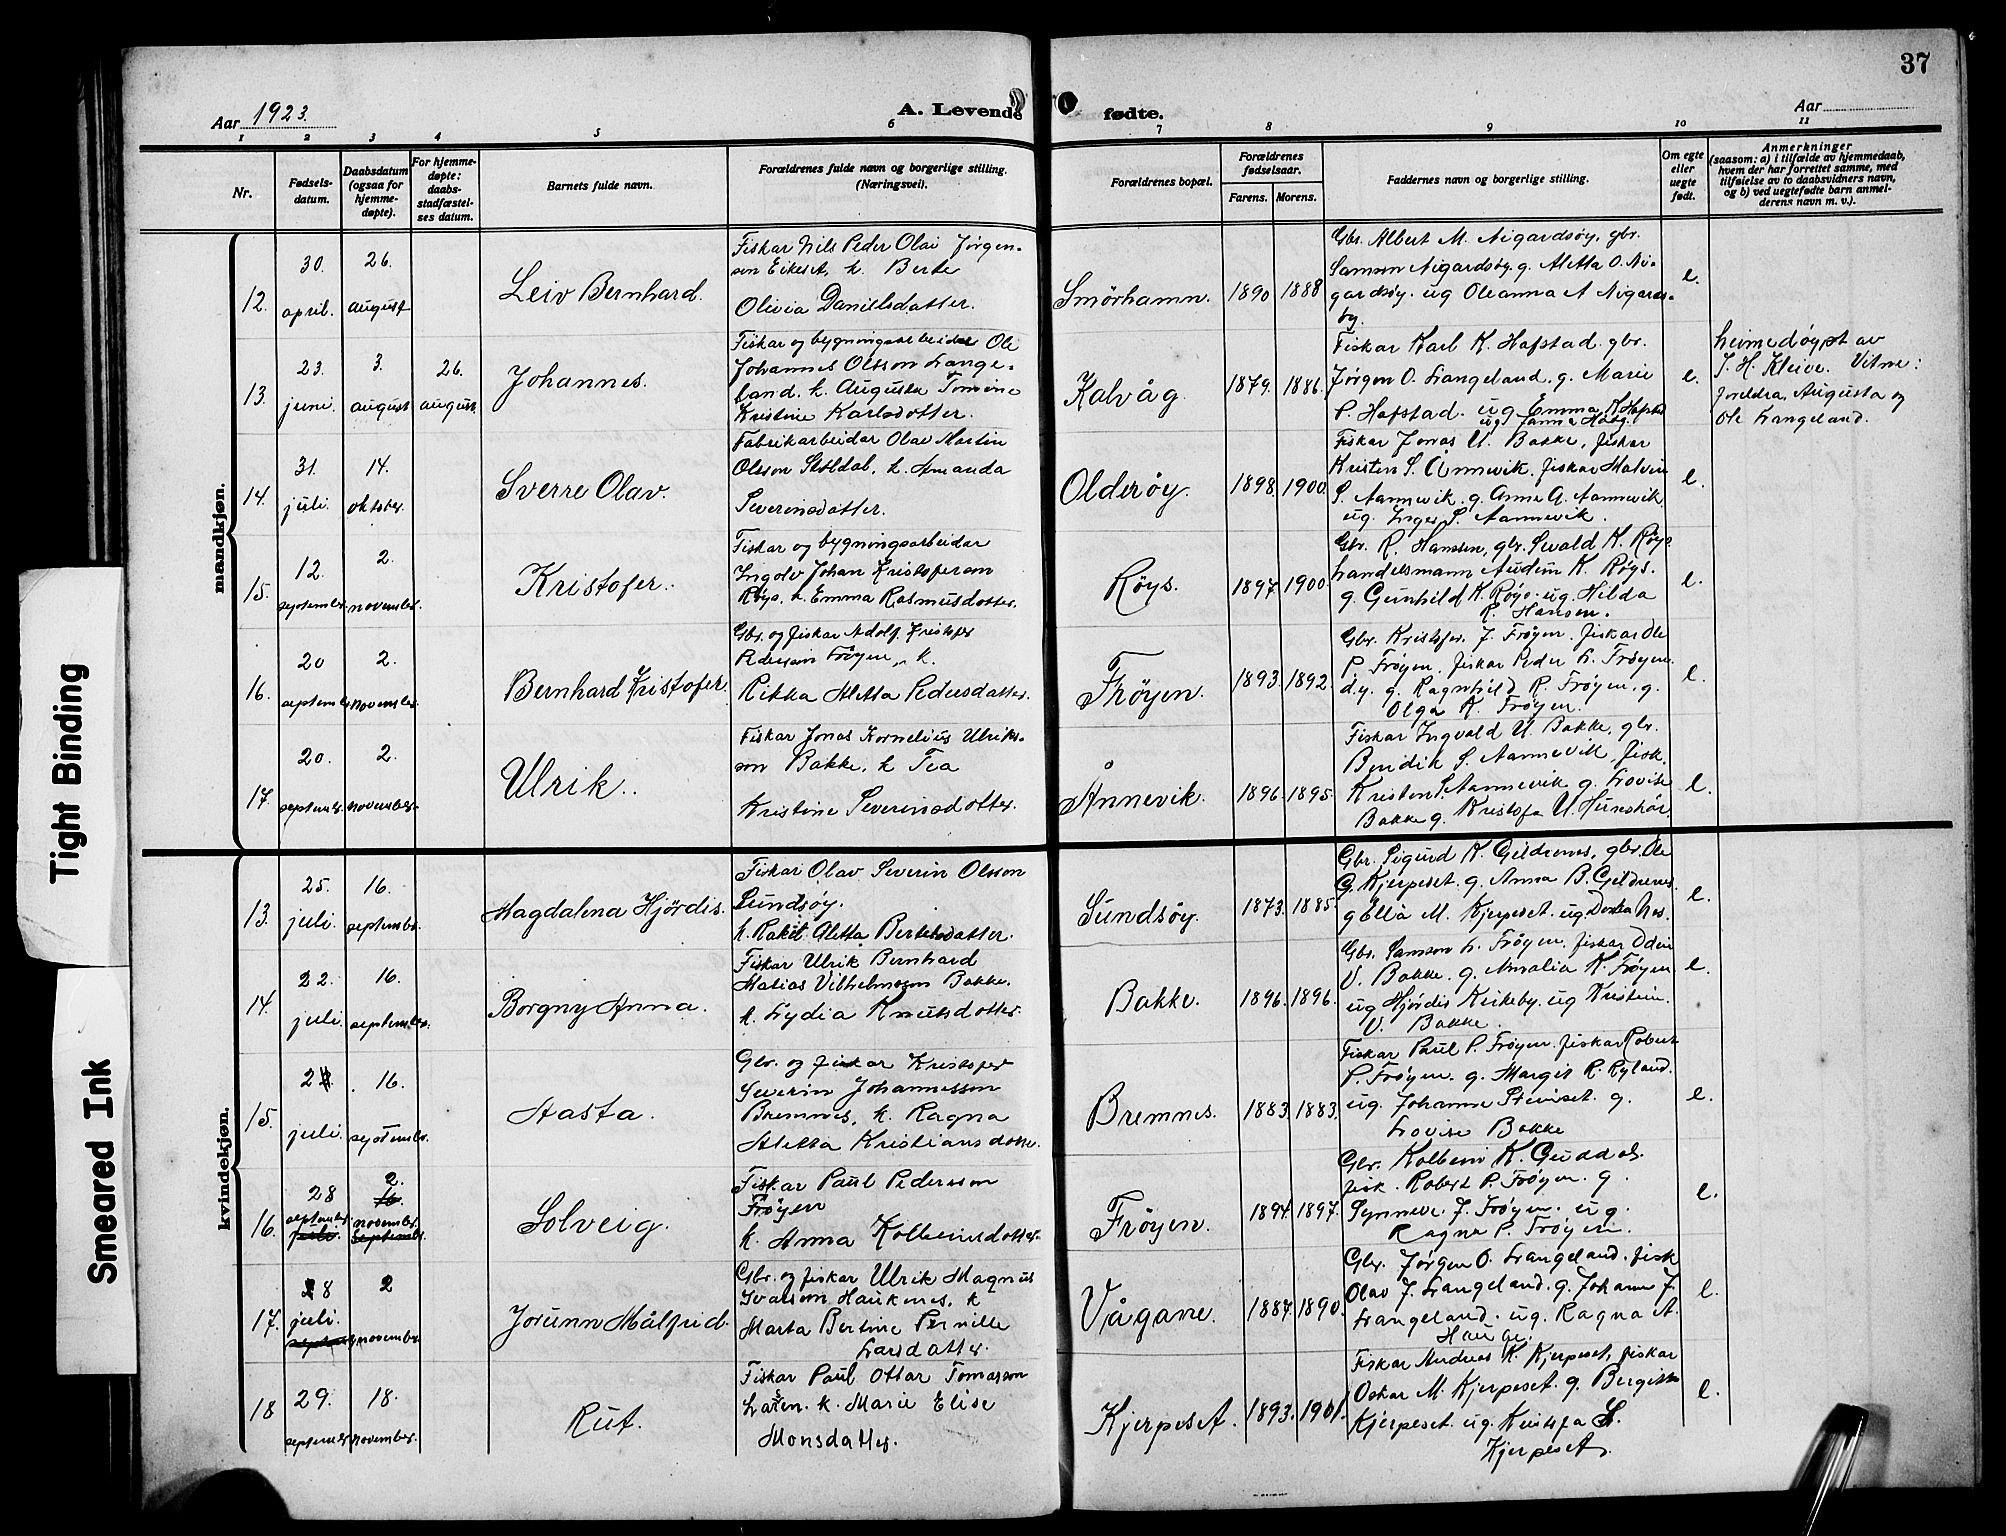 37
Aar 1923. A. Levende fødte. Aar
1 2 3 4 5 6 7 8 9 10 11
Nr.
Fødsels-
datum.
Daabsdatum
(ogsaa for
hjemme-
døpte).
For hjemme-
døpte:
daabs-
stadfæstel-
ses datum.
Barnets fulde navn.
Forældrenes fulde navn og borgerlige stilling.
(Næringsvei).
Forældrenes bopæl.
Forældrenes
fødselsaar.
Farens. Morens.
Faddernes navn og borgerlige stilling.
Om egte
eller
uegte
født.
Anmerkninger
(saasom: a) i tilfælde av hjemmedaab,
hvem der har forrettet samme, med
tilføielse av to daabsvidners navn,
og b) ved uegtefødte barn anmel-
derens navn m. v.).
mandkjøn.
12. 30. april. 26. august
Leiv Bernhard.
Fiskar Nils Peder Olai Jørgen-
sen Eikeset, k. Berte
Olivia Danielsdatter.
Smörhamn. 1890 1888
Gbr. Albert M. Nigardsøy, gbr.
Samson Nigardsøy. g. Aletta O. Ni-
gardsøy. ug Oleanna A Nigards-
øy.
e.
13. 23. juni. 3. august 26. august
Johannes.
Fiskar og bygningsarbeider Ole
Johannes Olsson Lange-
land. k. Augusta Tomine
Kristine Karlsdotter.
Kalvåg. 1879. 1886.
Fiskar Karl K. Hafstad. gbr.
Jørgen O. Langeland. g. Marie
P. Hafstad. ug Emma K Hafstad
e.
heimedøypt av
J. H. Kleive. Vitne:
foreldra, Augusta og
Ole Langeland.
14. 31. juli. 14. oktober.
Sverre Olav.
Fabrikarbeidar Olav Martin
Olsson Stöldal, k. Amanda
Severinsdatter.
Olderöy. 1898. 1900.
Fiskar Jonas U. Bakke, fiskar
Kristen S. Ånnevik. fiskar Malvin
S. Aannevik. g. Anna A. Aannevik
ug. Inger S. Aannevik.
e.
15. 12. september. 2. november.
Kristofer.
Fiskar og bygningsarbeidar
Ingolv Johan Kristoferson
Röys. k. Emma Rasmusdotter.
Röys. 1897. 1900.
Gbr. R. Hanssen, gbr. Sivald K. Röys
handelsmann Audun K. Röys.
g. Gunhild K. Röys. ug. Hilda
R. Hansen.
e.
16. 20 september 2. november.
Bernhard Kristofer.
Gbr. og fiskar Adolf Kristofer
Pederson Fröyen, k.
Rikka Aletta Pedersdatter.
Fröyen. 1893. 1892.
Gbr. Kristofer. J. Fröyen. fiskar Ole
P. Fröyen. fiskar Peder L. Fröyen.
d.y. g. Ragnhild R. Fröyen. g.
Olga K. Fröyen.
e.
17. 20. september. 2. november.
Ulrik.
Fiskar Jonas Kornelius Ulriks-
son Bakke. k Tea
Kristine Severinsdotter.
Ånnevik. 1896. 1895.
Fiskar Ingvald U. Bakke, gbr.
Bendik S. Aannevik fisk.
Kristen S. Aannevik g. Lovise
Bakke g. Kristofa U. Hunskår.
e.
kvindekjøn.
13. 25. juli. 16. september.
Magdalena Hjördis.
Fiskar Olav Severin Olsson
Sundsöy.
k. Rakel Aletta Bertelsdatter.
Sundsöy. 1873. 1885.
Gbr. Sigurd K. Gildrenes, gbr. Ole
G. Kjerpeset. g. Anna B. Gildrenes.
g Ella M. Kjerpeset. ug.
e.
14. 22. juli. 16. september.
Borgny Anna.
Fiskar Ulrik Bernhard
Matias Vilhelmsson Bakke.
k. Lydia Knutsdotter.
Bakke. 1896. 1896.
Gbr. Samson L. Fröyen. fiskar Odin
V. Bakke. g. Amalia K. Fröyen
ug Hjördis Kirkeby. ug Kristin.
V. Bakke.
e.
15. juli. 16. september.
Aasta.
Gbr. og fiskar Kristofer
Severin Johannesson
Bremnes, k. Ragna
Aletta Kristiansdotter.
Bremnes. 1883. 1883.
Fiskar Paul P. Fröyen. fiskar Robert
P. Fröyen. g. Margit R. Ryland.
ug. Johanne Steinset. g.
Lovise Bakke
e.
16. 28 september juli. 2. 16. november september.
Solveig.
Fiskar Paul Pedersson
Fröyen
k. Anna Kolbeinsdotter.
Fröyen. 1894. 1897.
Gbr. Kolbein K. Guddal.
fisk. Robert P. Fröyen. g.
Synneve J. Fröyen. ug.
Ragna P. Fröyen.
e.
17. 8 juli. 2 november.
Jorunn Målfrid.
Gbr. og fiskar Ulrik Magnus
Ivarson Hauknes, k
Marta Bertine Pernille
Larsdotter.
Vågane. 1887. 1890.
Gbr. Jørgen O. Langeland. fisk
Olav J. Langeland. g. Johanne J.
Langeland. ug. Ragna A.
Hauge.
e.
18 29. september 18. november.
Rut.
Fiskar Paul Ottar Tomasson
Larsen. k. Marie Elise
Monsdatter.
Kjerpeset. 1893. 1901.
Fiskar Andreas K. Kjerpeset, fiskar
Oskar M. Kjerpeset. g. Bergitta
Kjerpeset. ug. Kristofa S.
Kjerpeset.
e.
Tight Binding
Smeared Ink